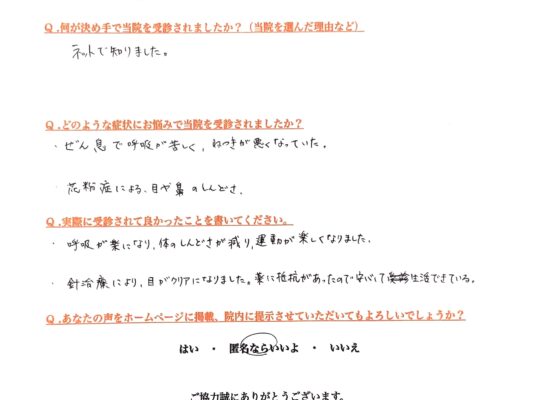 Q.何が決め手で当院を受診されましたか？（当院を選んだ理由など）
ネットで知りました。
Q.どのような症状にお悩みで当院を受診されましたか？
・ぜん息で呼吸が苦しく、ねつきが悪くなっていた。
・花粉症による、目や鼻のしんどさ。
Q.実際に受診されて良かったことを書いてください。
・呼吸が楽になり、体のしんどさが減り、運動が楽しくなりました。
・針治療により、目がクリアになりました。薬に抵抗があったので安心して生活できている。
Q.あなたの声をホームページに掲載、院内に提示させていただいてもよろしいでしょうか？
はい ・ 匿名ならいいよ ・ いいえ
ご協力誠にありがとうございます。